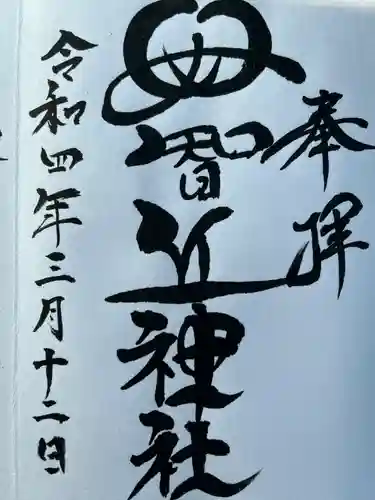 奉拝
母智丘神社
令和四年三月十二日